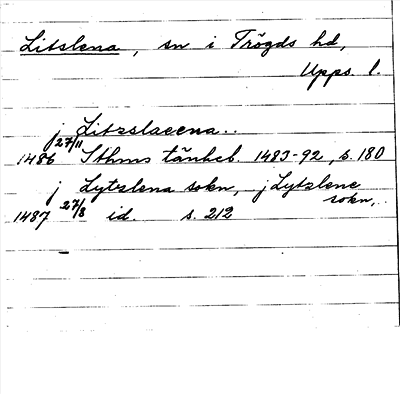 Litslena, sn i Trögds hd,
Upps. l.
j Litzslaeena..
1486 27/11 Sthms tänkeb. 1483-92, s. 180
j Lytzlena sokn, j Lytzlene
sokn,
1487 27/8 id. s. 212